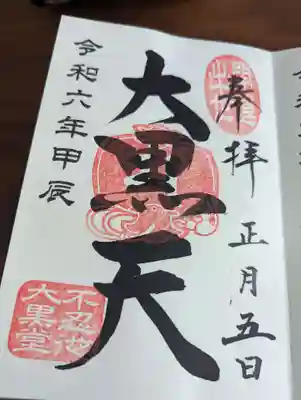 奉拝
正月五日
大黒天
令和六年甲辰
不忍池
大黒堂